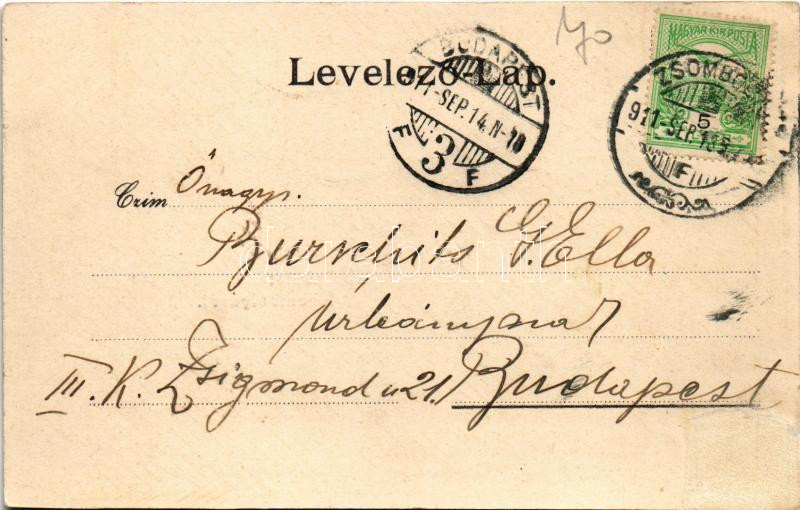 Levelező-Lap.
BUDAPEST
911-SEP.14.N-10
F 3 F
MAGYAR KIR. POSTA
ZSOMBO
911-SEP.13
5
F
Czim Őnagys.
Burschits G. Ella
úrleánynak
III. K. Zsigmond u 21. Budapest
darabanth